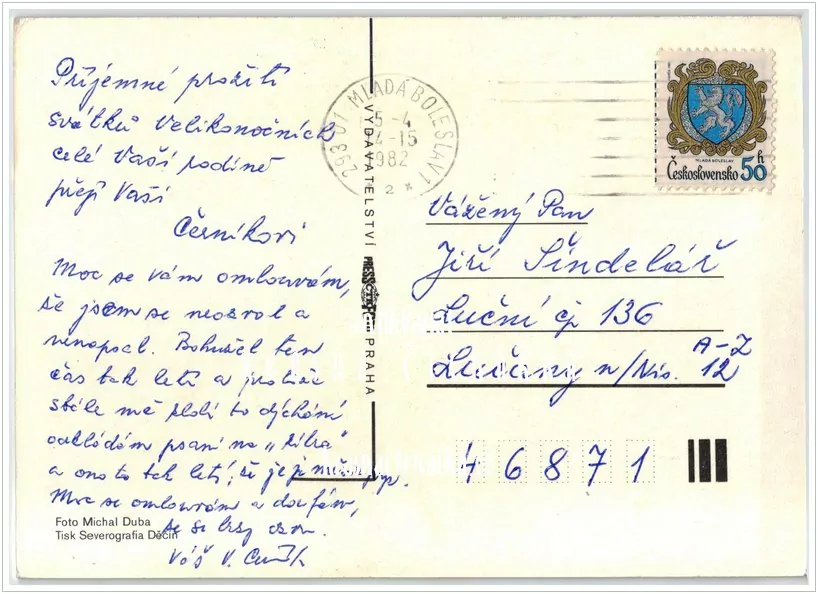 Příjemné prožití
svátků Velikonočních
celé Vaší rodině
přejí Vaši
Černíkovi
Moc se vám omlouvám,
že jsem se neozval a
nenapsal. Bohužel ten
čas tak letí a protože
stále mě zlobí to dýchání
odkládám psaní na „zítra“
a ono to tak letí, že je
Moc se omlouvám a doufám,
že se brzy
Váš V. Černík
Foto Michal Duba
Tisk Severografia Děčín
VYDAVATELSTVÍ PRESSFOTO PRAHA
293 01 MLADÁ BOLESLAV 1
5-4
14-15
1982
2 *
MLADÁ BOLESLAV
Československo 50 h
Vážený Pan
Jiří Šindelář
Luční čp 136
Lučany n/Nis. A-Z
12
46871